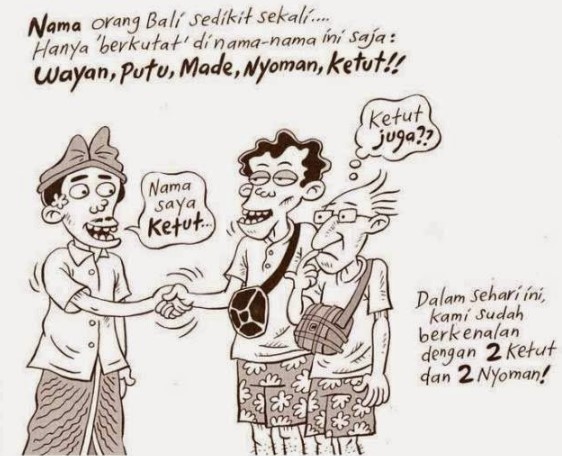 Nama orang Bali sedikit sekali....
Hanya 'berkutat' di nama-nama ini saja:
Wayan, Putu, Made, Nyoman, Ketut!!
Ketut
juga??
Nama
saya
Ketut...
Dalam sehari ini,
kami sudah
berkenalan
dengan 2 Ketut
dan 2 Nyoman!